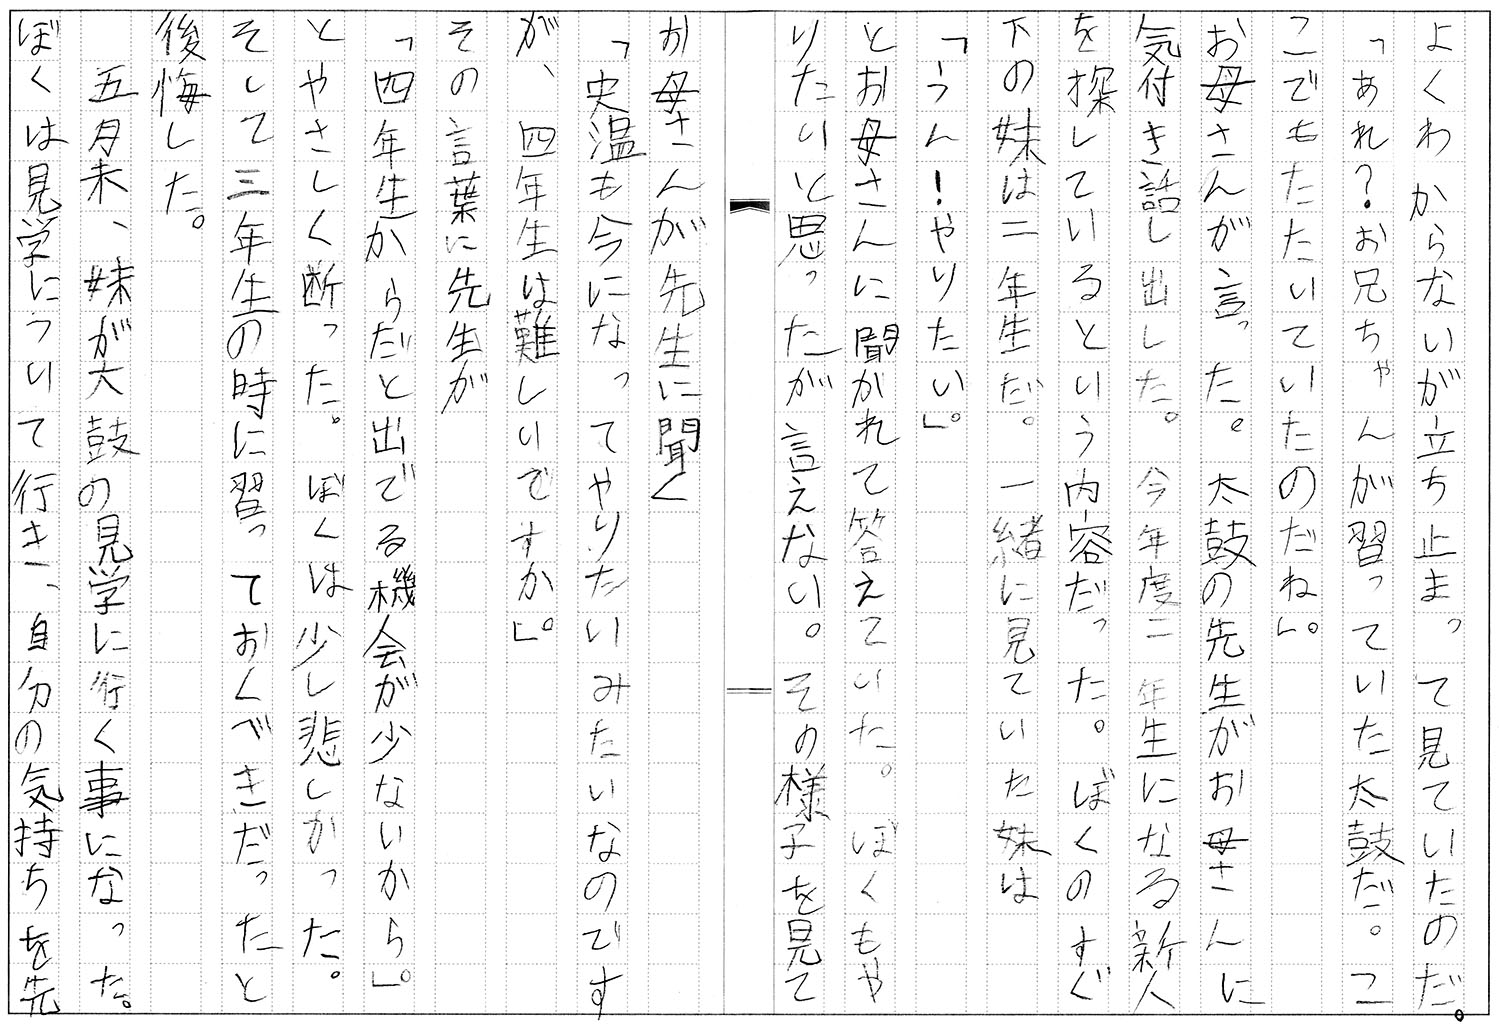 よくわからないが立ち止まって見ていたのだ。
「あれ？お兄ちゃんが習っていた太鼓だ。こ
こでもたたいていたのだね」。
お母さんが言った。太鼓の先生がお母さんに
気付き話し出した。今年度二年生になる新人
を探しているという内容だった。ぼくのすぐ
下の妹は二年生だ。一緒に見ていた妹は
「うん！やりたい」。
とお母さんに聞かれて答えていた。ぼくもや
りたいと思ったが言えない。その様子を見て
お母さんが先生に聞く
「史温も今になってやりたいみたいなのです
が、四年生は難しいですか」。
その言葉に先生が
「四年生からだと出でる機会が少ないから」。
とやさしく断った。ぼくは少し悲しかった。
そして三年生の時に習っておくべきだったと
後悔した。
五月末、妹が大鼓の見学に行く事になった。
ぼくは見学について行き、自分の気持ちを先